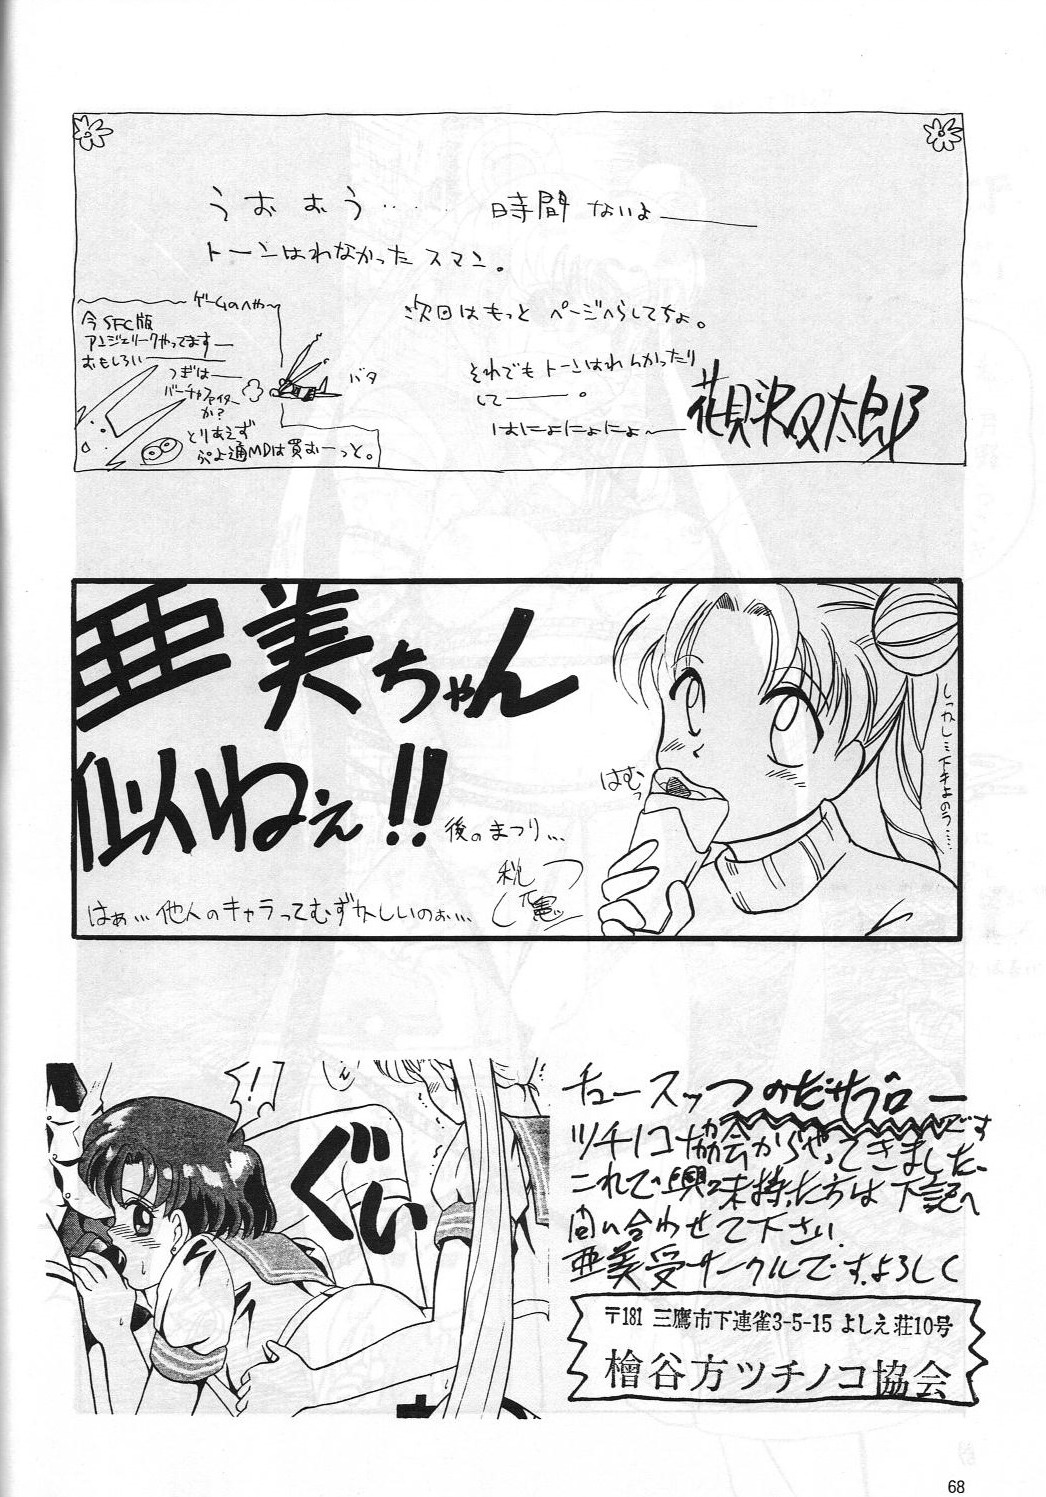 うおおう‥‥ 時間ないよ――
トーンはれなかったスマン。
次回はもっとページへらしてちょ。
それでもトーンはれんかったり
して――。
はにょにょにょ～
花見沢Q太郎
ゲームのへや～
今SFC版
アンジェリークやってます―
おもしろい――
つぎは―
バーチャファイター
か?
とりあえず
ぷよ通MDは買おーっと。
バタ
亜美ちゃん
似ねぇ!!
後のまつり…
はぁ… 他人のキャラってむずかしいのぉ…
はむっ
!?
ぐいっ
チュースッつのだサブローです
ツチノコ協会からやってきました、
これで興味持た方は下記へ
問い合わせて下さい
亜美受サークルです、よろしく
〒181 三鷹市下連雀3-5-15 よしえ荘10号
檜谷方ツチノコ協会
68